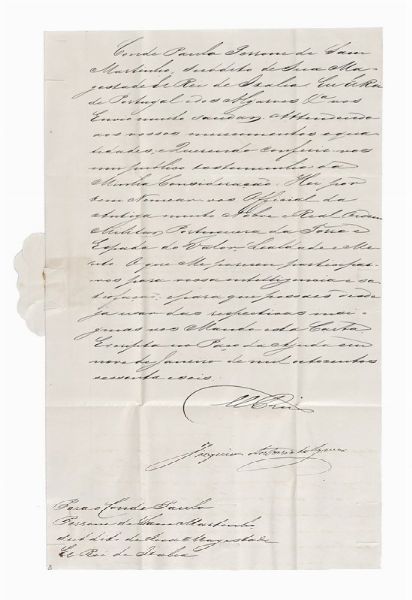 Conde Paulo Perrone de San
Martinho, subdito de Sua Ma-
gestade El Rei de Italia. Eu El Rei
de Portugal e dos Algarves &ª vos
Envio muito saudar. Attendendo
aos vossos merecimentos e qua-
lidades, e Querendo conferir-vos
um publico testemunho da
Minha Consideração: Hei por
bem Nomear-vos Official da
Antiga e muito Nobre Real Ordem
Militar Portugueza da Torre e
Espada do Valor, Lealdade e Me-
rito. O que Me pareceu participar-
vos para vossa intelligencia e sa-
tisfação, e para que possaes desde
já usar das respectivas insi-
gnias vos Mando esta Carta.
Escripta no Paço da Ajuda em
nove de Janeiro de mil oitocentos
sessenta e seis.
El Rei
Joaquim Antonio de Aguiar
Para o Conde Paulo
Perrone de San Martinho
subdito de Sua Magestade
El Rei de Italia